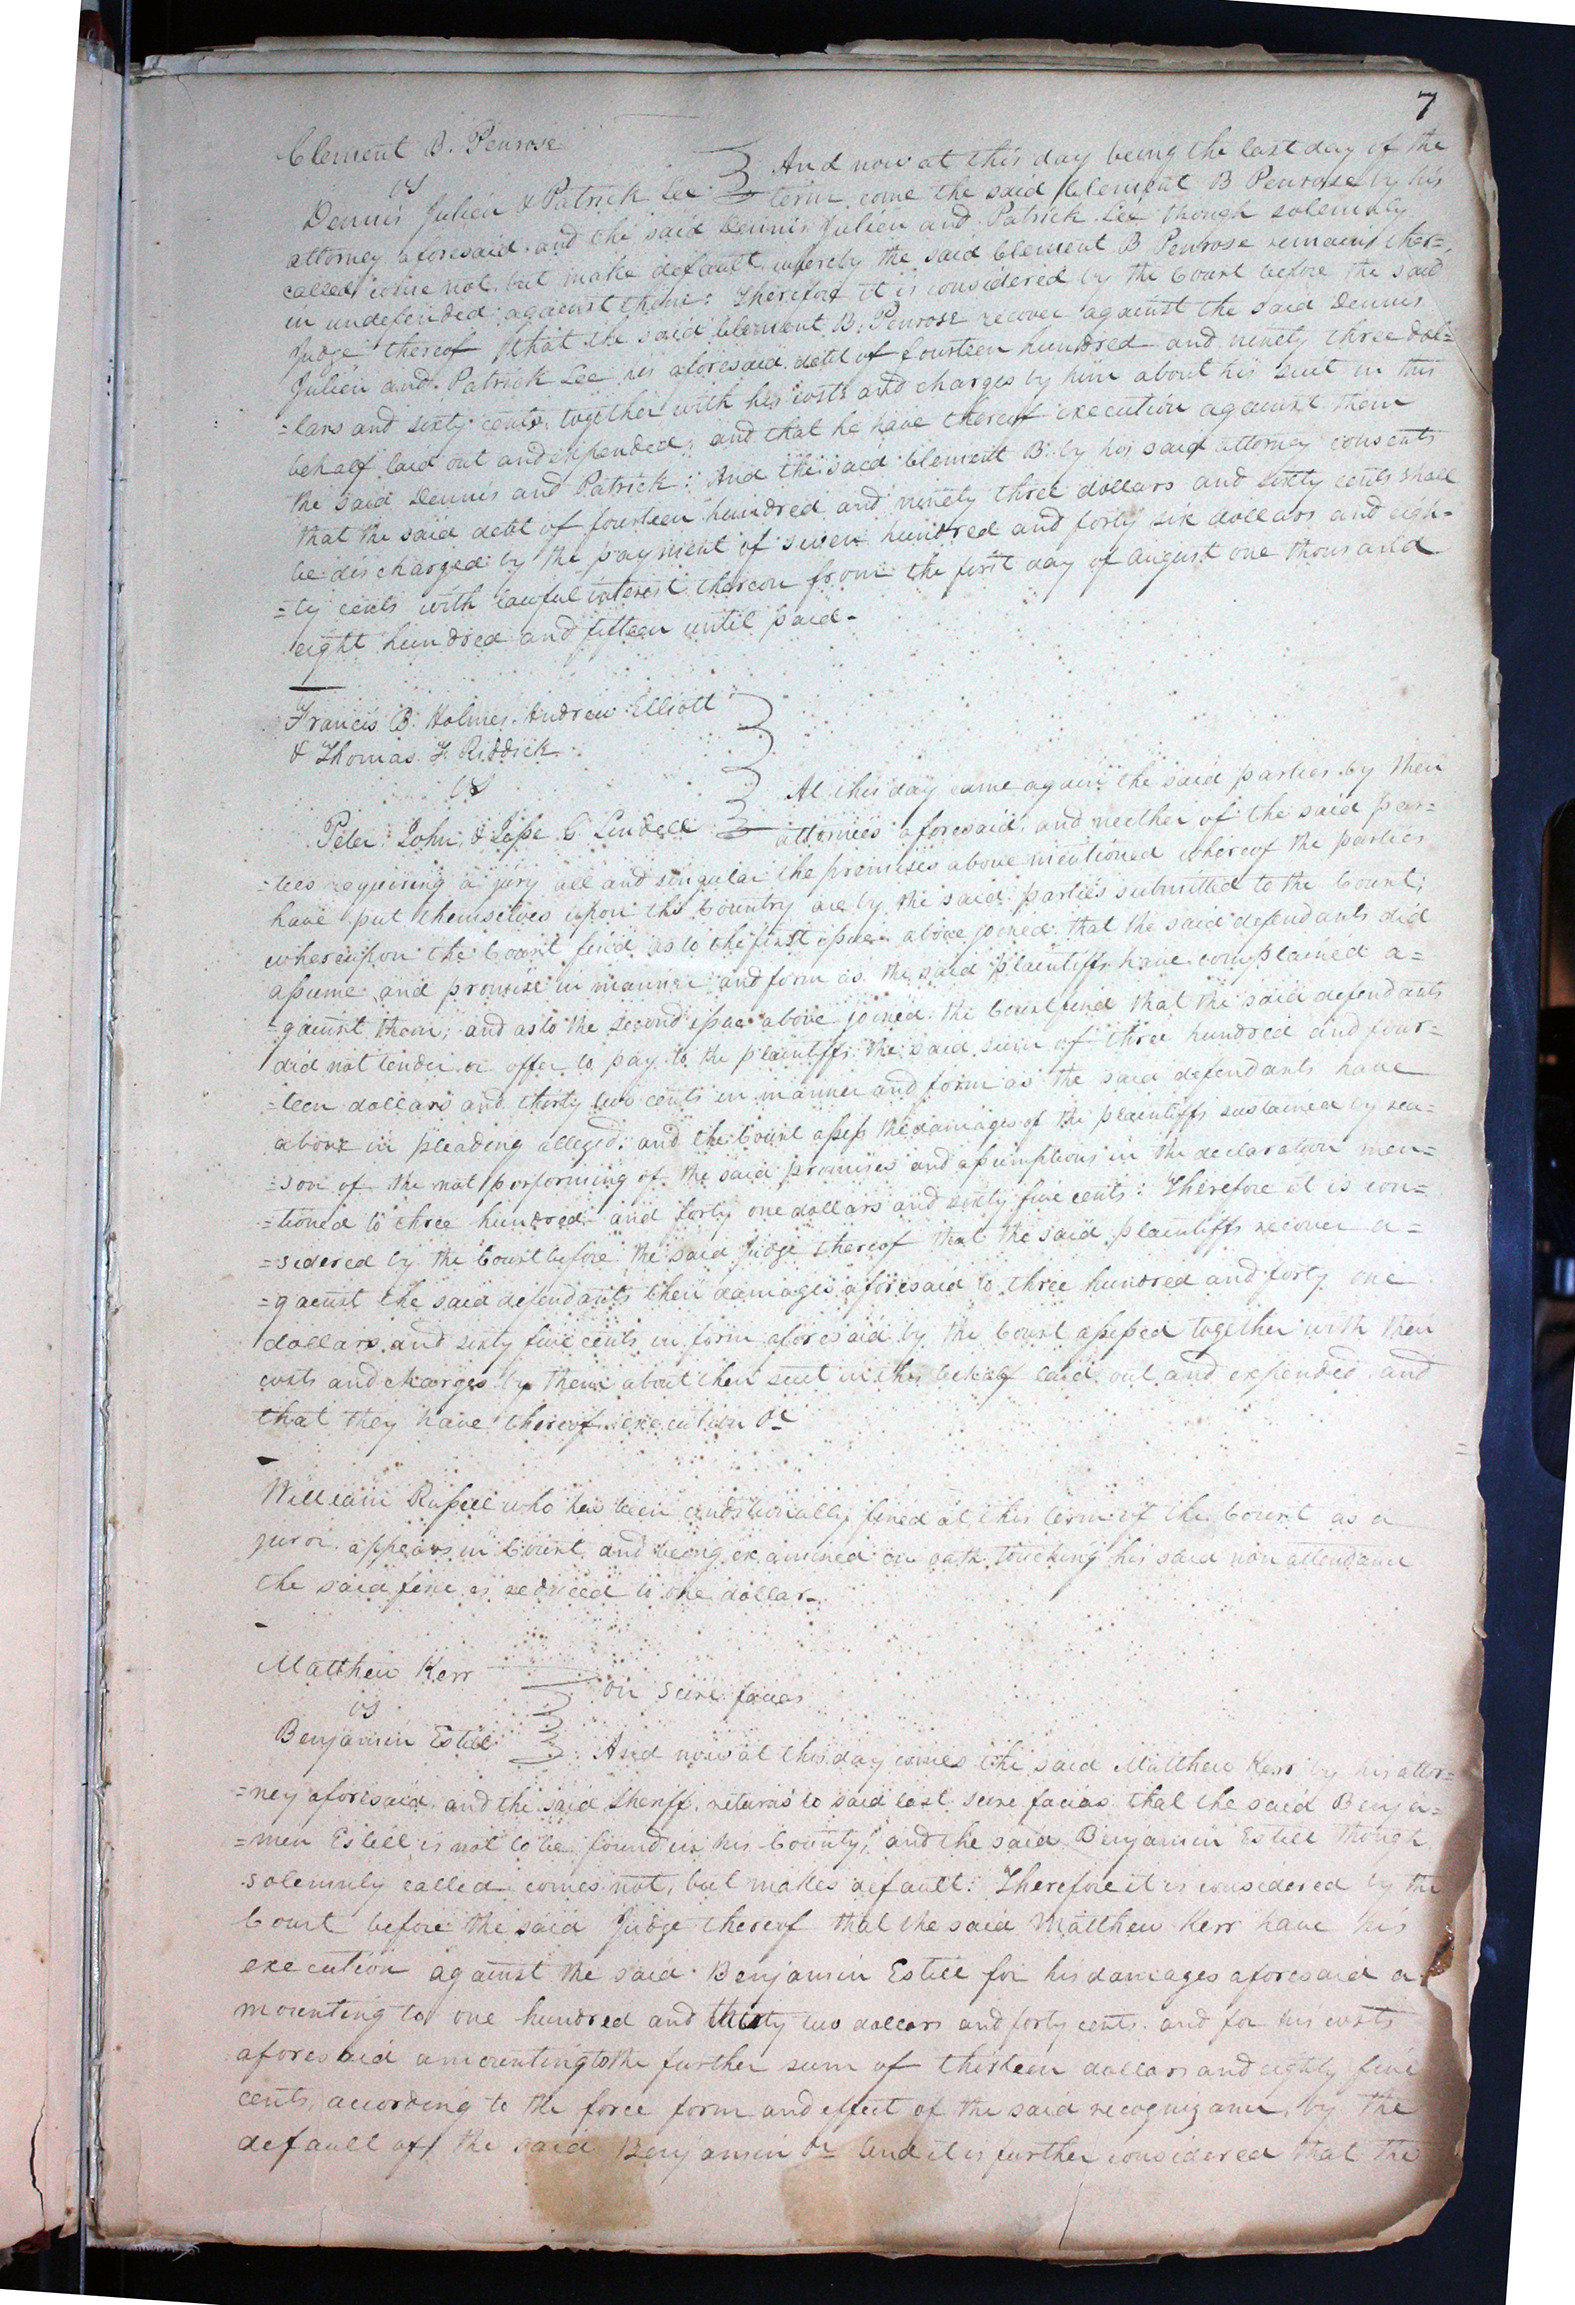 7
Clement B. Penrose
vs
Dennis Julien & Patrick Lee
And now at this day being the last day of the
term come the said Clement B Penrose by his
attorney aforesaid and the said Dennis Julien and Patrick Lee though solemnly
called come not but make default whereby the said Clement B Penrose remains ther=
in undefended against them: Therefore it is considered by the Court before the said
Judge thereof that the said Clement B. Penrose recover against the said Dennis
Julien and Patrick Lee his aforesaid debt of fourteen hundred and ninety three dol=
=lars and sixty cents together with his costs and charges by him about his suit in this
behalf laid out and expended; and that he have thereof execution against them
the said Dennis and Patrick: And the said Clement B. by his said attorney consents
that the said debt of fourteen hundred and ninety three dollars and sixty cents shall
be discharged by the payment of seven hundred and forty six dollars and eigh=
=ty cents with lawful interest thereon from the first day of August one thousand
eight hundred and fifteen until paid-
Francis B. Holmes, Andrew Elliott
& Thomas F. Riddick
vs
Peter, John, & Jesse G Lindell
At this day came again the said parties by their
attornies aforesaid and neither of the said par=
=ties requiring a jury all and singular the premises above mentioned whereof the parties
have put themselves upon the Country are by the said parties submitted to the Court;
whereupon the Court find as to the first issue above joined that the said defendants did
assume and promise in manner and form as the said plaintiffs have complained a=
=gainst them; and as to the second issue above joined the Court find that the said defendants
did not tender or offer to pay to the plaintiffs the said sum of three hundred and four=
=teen dollars and thirty two cents in manner and form as the said defendants have
above in pleading alleged: and the Court assess the damages of the plaintiffs sustained by rea=
=son of the not performing of the said promises and assumptions in the declaration men=
=tioned to three hundred and forty one dollars and sixty five cents: Therefore it is con=
=sidered by the Court before the said Judge thereof that the said plaintiffs recover a=
=gainst the said defendants their damages aforesaid to three hundred and forty one
dollars and sixty five cents in form aforesaid by the Court assessed together with their
costs and charges by them about their suit in this behalf laid out and expended and
that they have thereof execution &c
William Russell who has been conditionally fined at this term of the Court as a
juror appears in Court and being examined on oath touching his said non attendance
the said fine is reduced to one dollar-
Matthew Kerr
vs
Benjamin Estill
on scire facias
And now at this day comes the said Matthew Kerr by his attor=
=ney aforesaid and the said Sheriff returns to said last scire facias that the said Benja=
=min Estill is not to be found in his County; and the said Benjamin Estill though
solemnly called comes not, but makes default: Therefore it is considered by the
Court before the said Judge thereof that the said Matthew Kerr have his
execution against the said Benjamin Estill for his damages aforesaid a
mounting to one hundred and thirty two dollars and forty cents and for his costs
aforesaid amounting to the further sum of thirteen dollars and eighty five
cents, according to the force form and effect of the said recognizance, by the
default of the said Benjamin &c And it is further considered that the